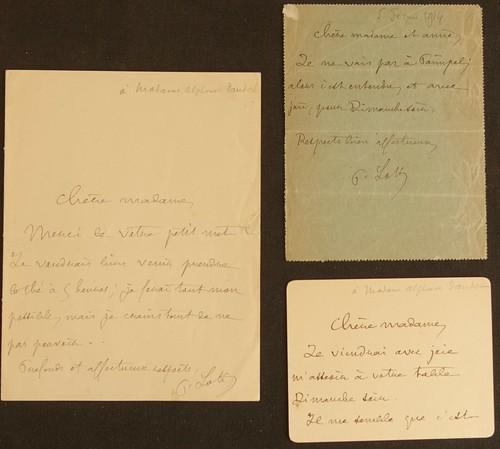 à Madame Alphonse Daudet
Chère madame,
Merci de votre petit mot
Je voudrais bien venir prendre
le thé à 5 heures; je ferai tout mon
possible, mais je crains tout de ne
pas pouvoir...
Profonds et affectueux respects,
P. Loti
5 1914
Chère madame et amie,
Je ne vais pas à Paimpol;
alors c'est entendu, et avec
joie, pour Dimanche soir.
Respects bien affectueux
P. Loti
à Madame Alphonse Daudet
Chère madame,
Je viendrai avec joie
m'asseoir à votre table
Dimanche soir.
Il me semble que c'est